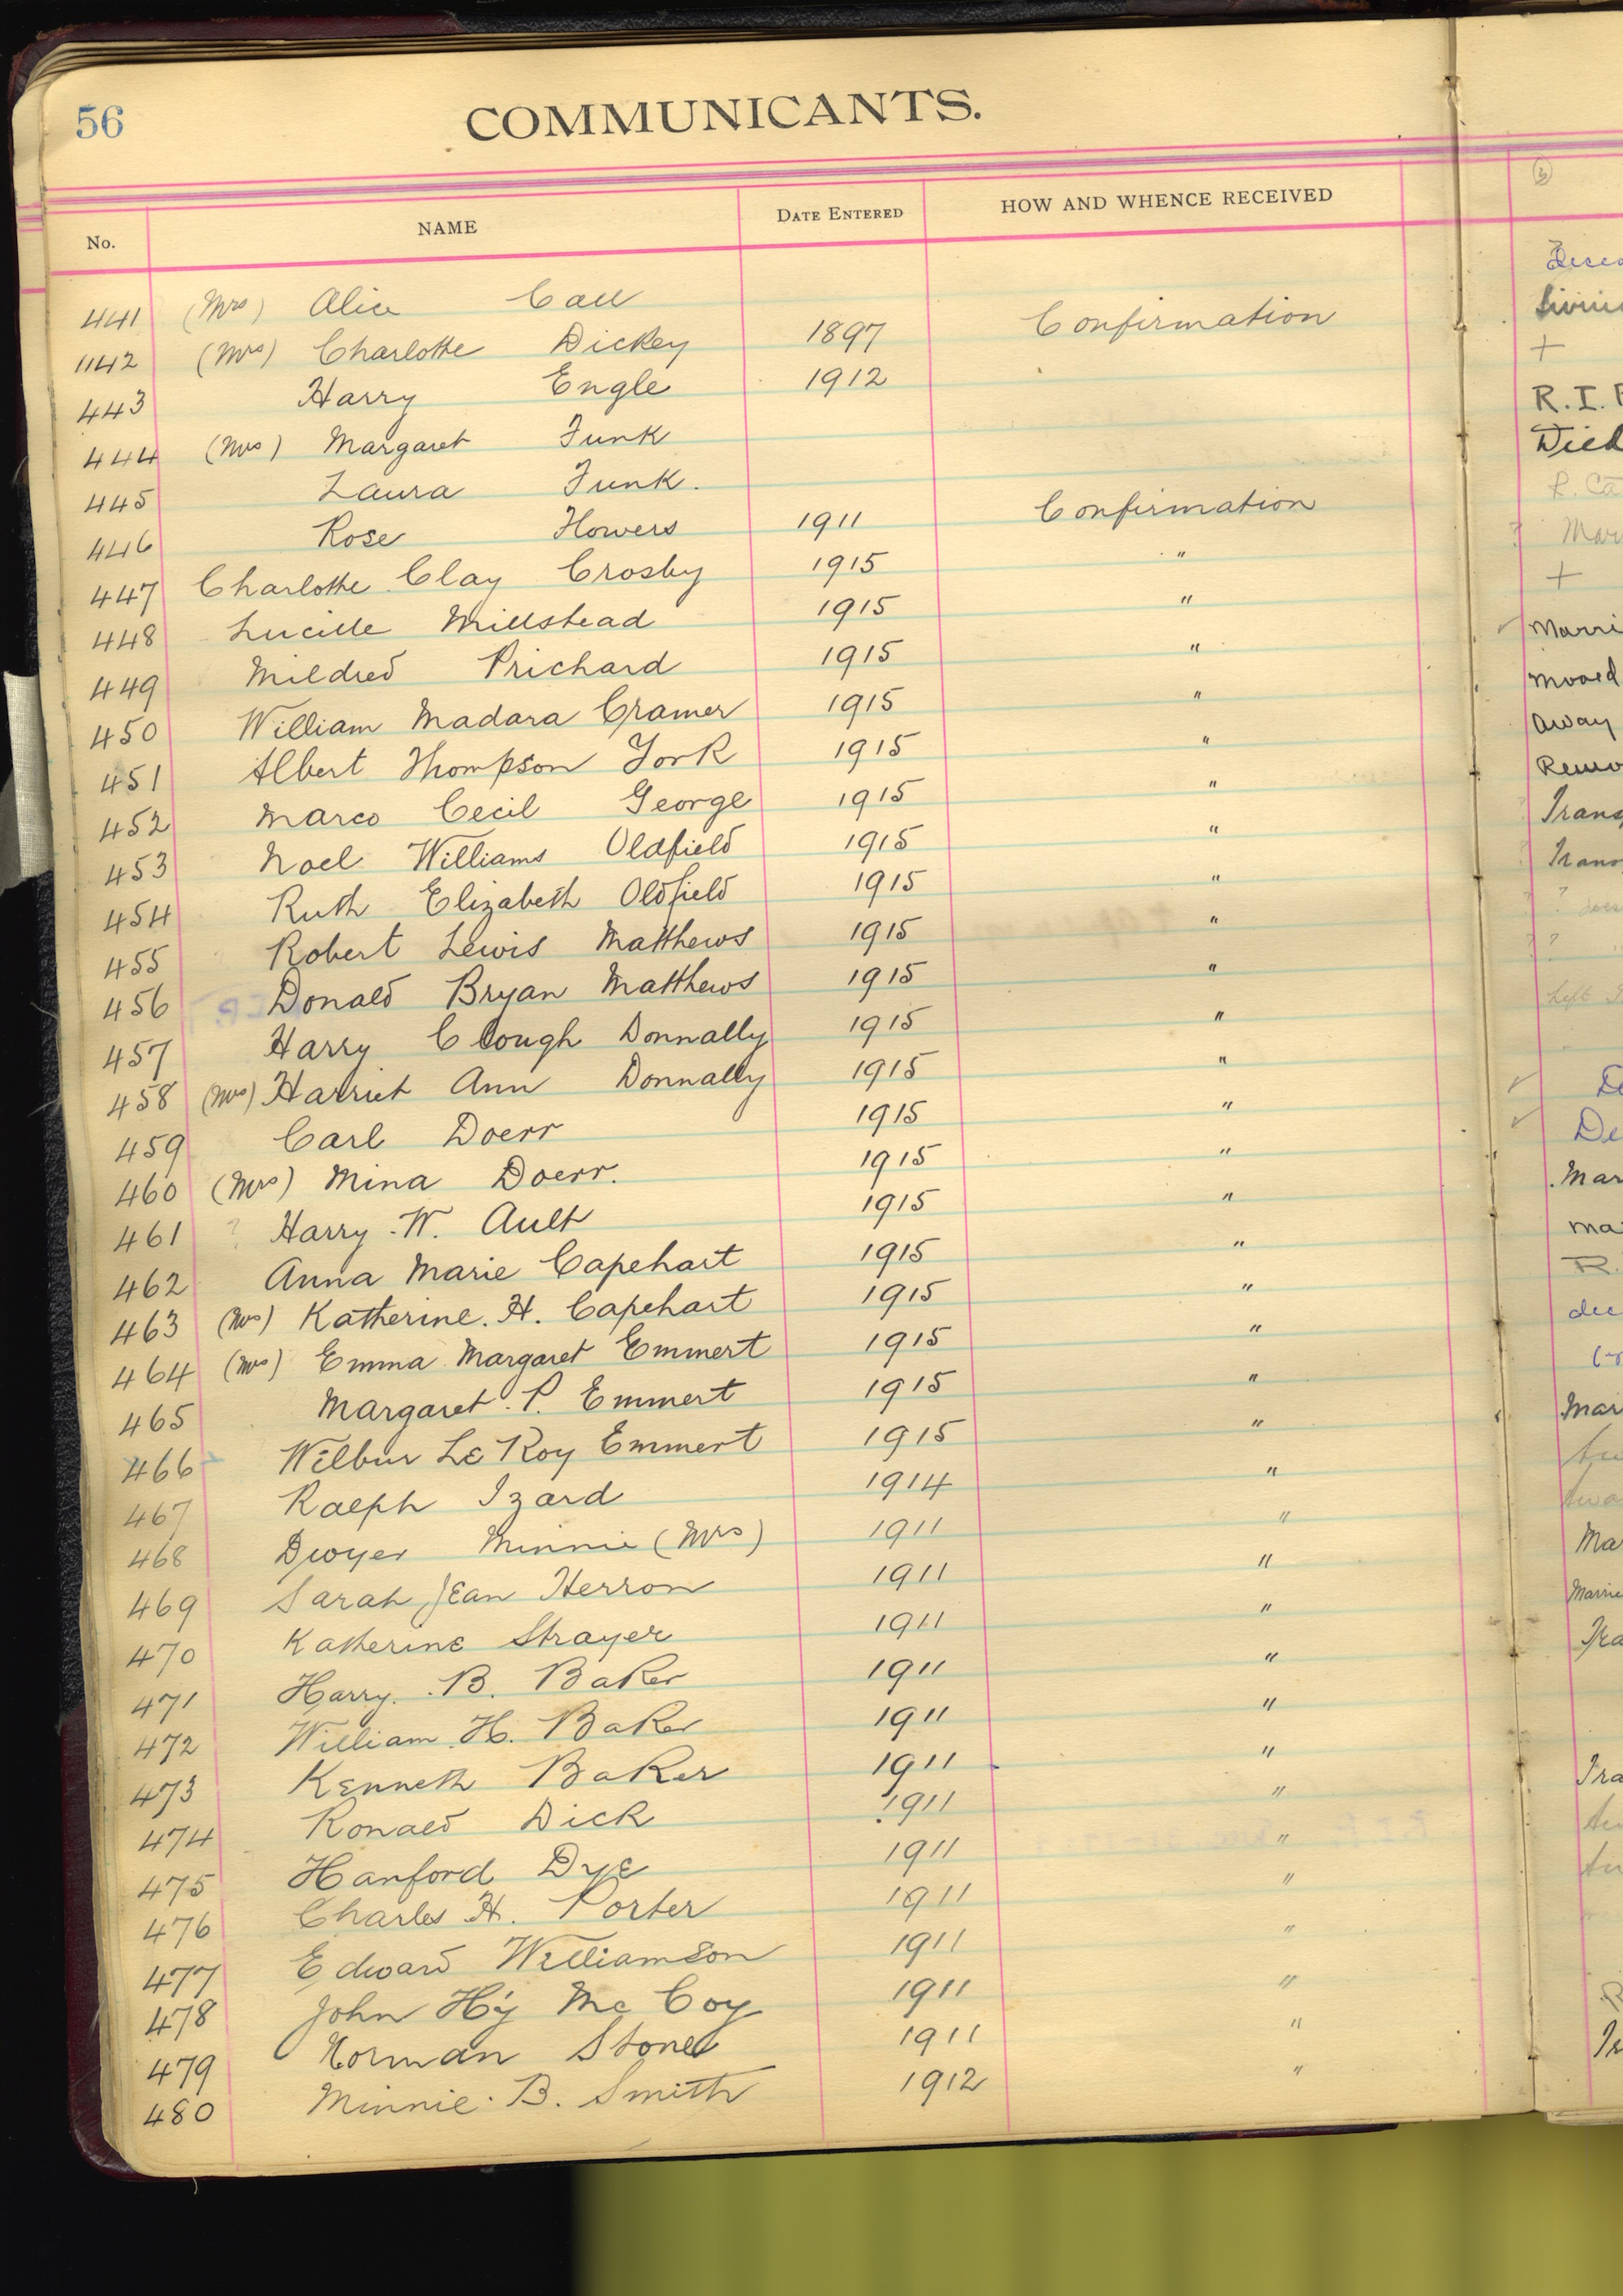 56
COMMUNICANTS.
No. NAME DATE ENTERED HOW AND WHENCE RECEIVED
441 (Mrs) Alice Call
442 (Mrs) Charlotte Dickey 1897 Confirmation
443 Harry Engle 1912
444 (Mrs) Margaret Funk
445 Laura Funk.
446 Rose Howers 1911 Confirmation
447 Charlotte Clay Crosby 1915 "
448 Lucille Millstead 1915 "
449 Mildred Prichard 1915 "
450 William Madara Cramer 1915 "
451 Albert Thompson York 1915 "
452 Marco Cecil George 1915 "
453 Noel Williams Oldfield 1915 "
454 Ruth Elizabeth Oldfield 1915 "
455 Robert Lewis Matthews 1915 "
456 Donald Bryan Matthews 1915 "
457 Harry Clough Donnally 1915 "
458 (Mrs) Harriet Ann Donnally 1915 "
459 Carl Doerr 1915 "
460 (Mrs) Mina Doerr. 1915 "
461 ? Harry W. Ault 1915 "
462 Anna Marie Capehart 1915 "
463 (Mrs) Katherine. H. Capehart 1915 "
464 (Mrs) Emma Margaret Emmert 1915 "
465 Margaret P. Emmert 1915 "
466 Wilbur Le Roy Emmert 1915 "
467 Ralph Izard 1914 "
468 Dwyer Minnie (Mrs) 1911 "
469 Sarah Jean Herron 1911 "
470 Katherine Strayer 1911 "
471 Harry. B. Baker 1911 "
472 William H. Baker 1911 "
473 Kenneth Baker 1911 "
474 Ronald Dick 1911 "
475 Hanford Dye 1911 "
476 Charles H. Porter 1911 "
477 Edward Williamson 1911 "
478 John H'y Mc Coy 1911 "
479 Norman Stone 1911 "
480 Minnie B. Smith 1912 "